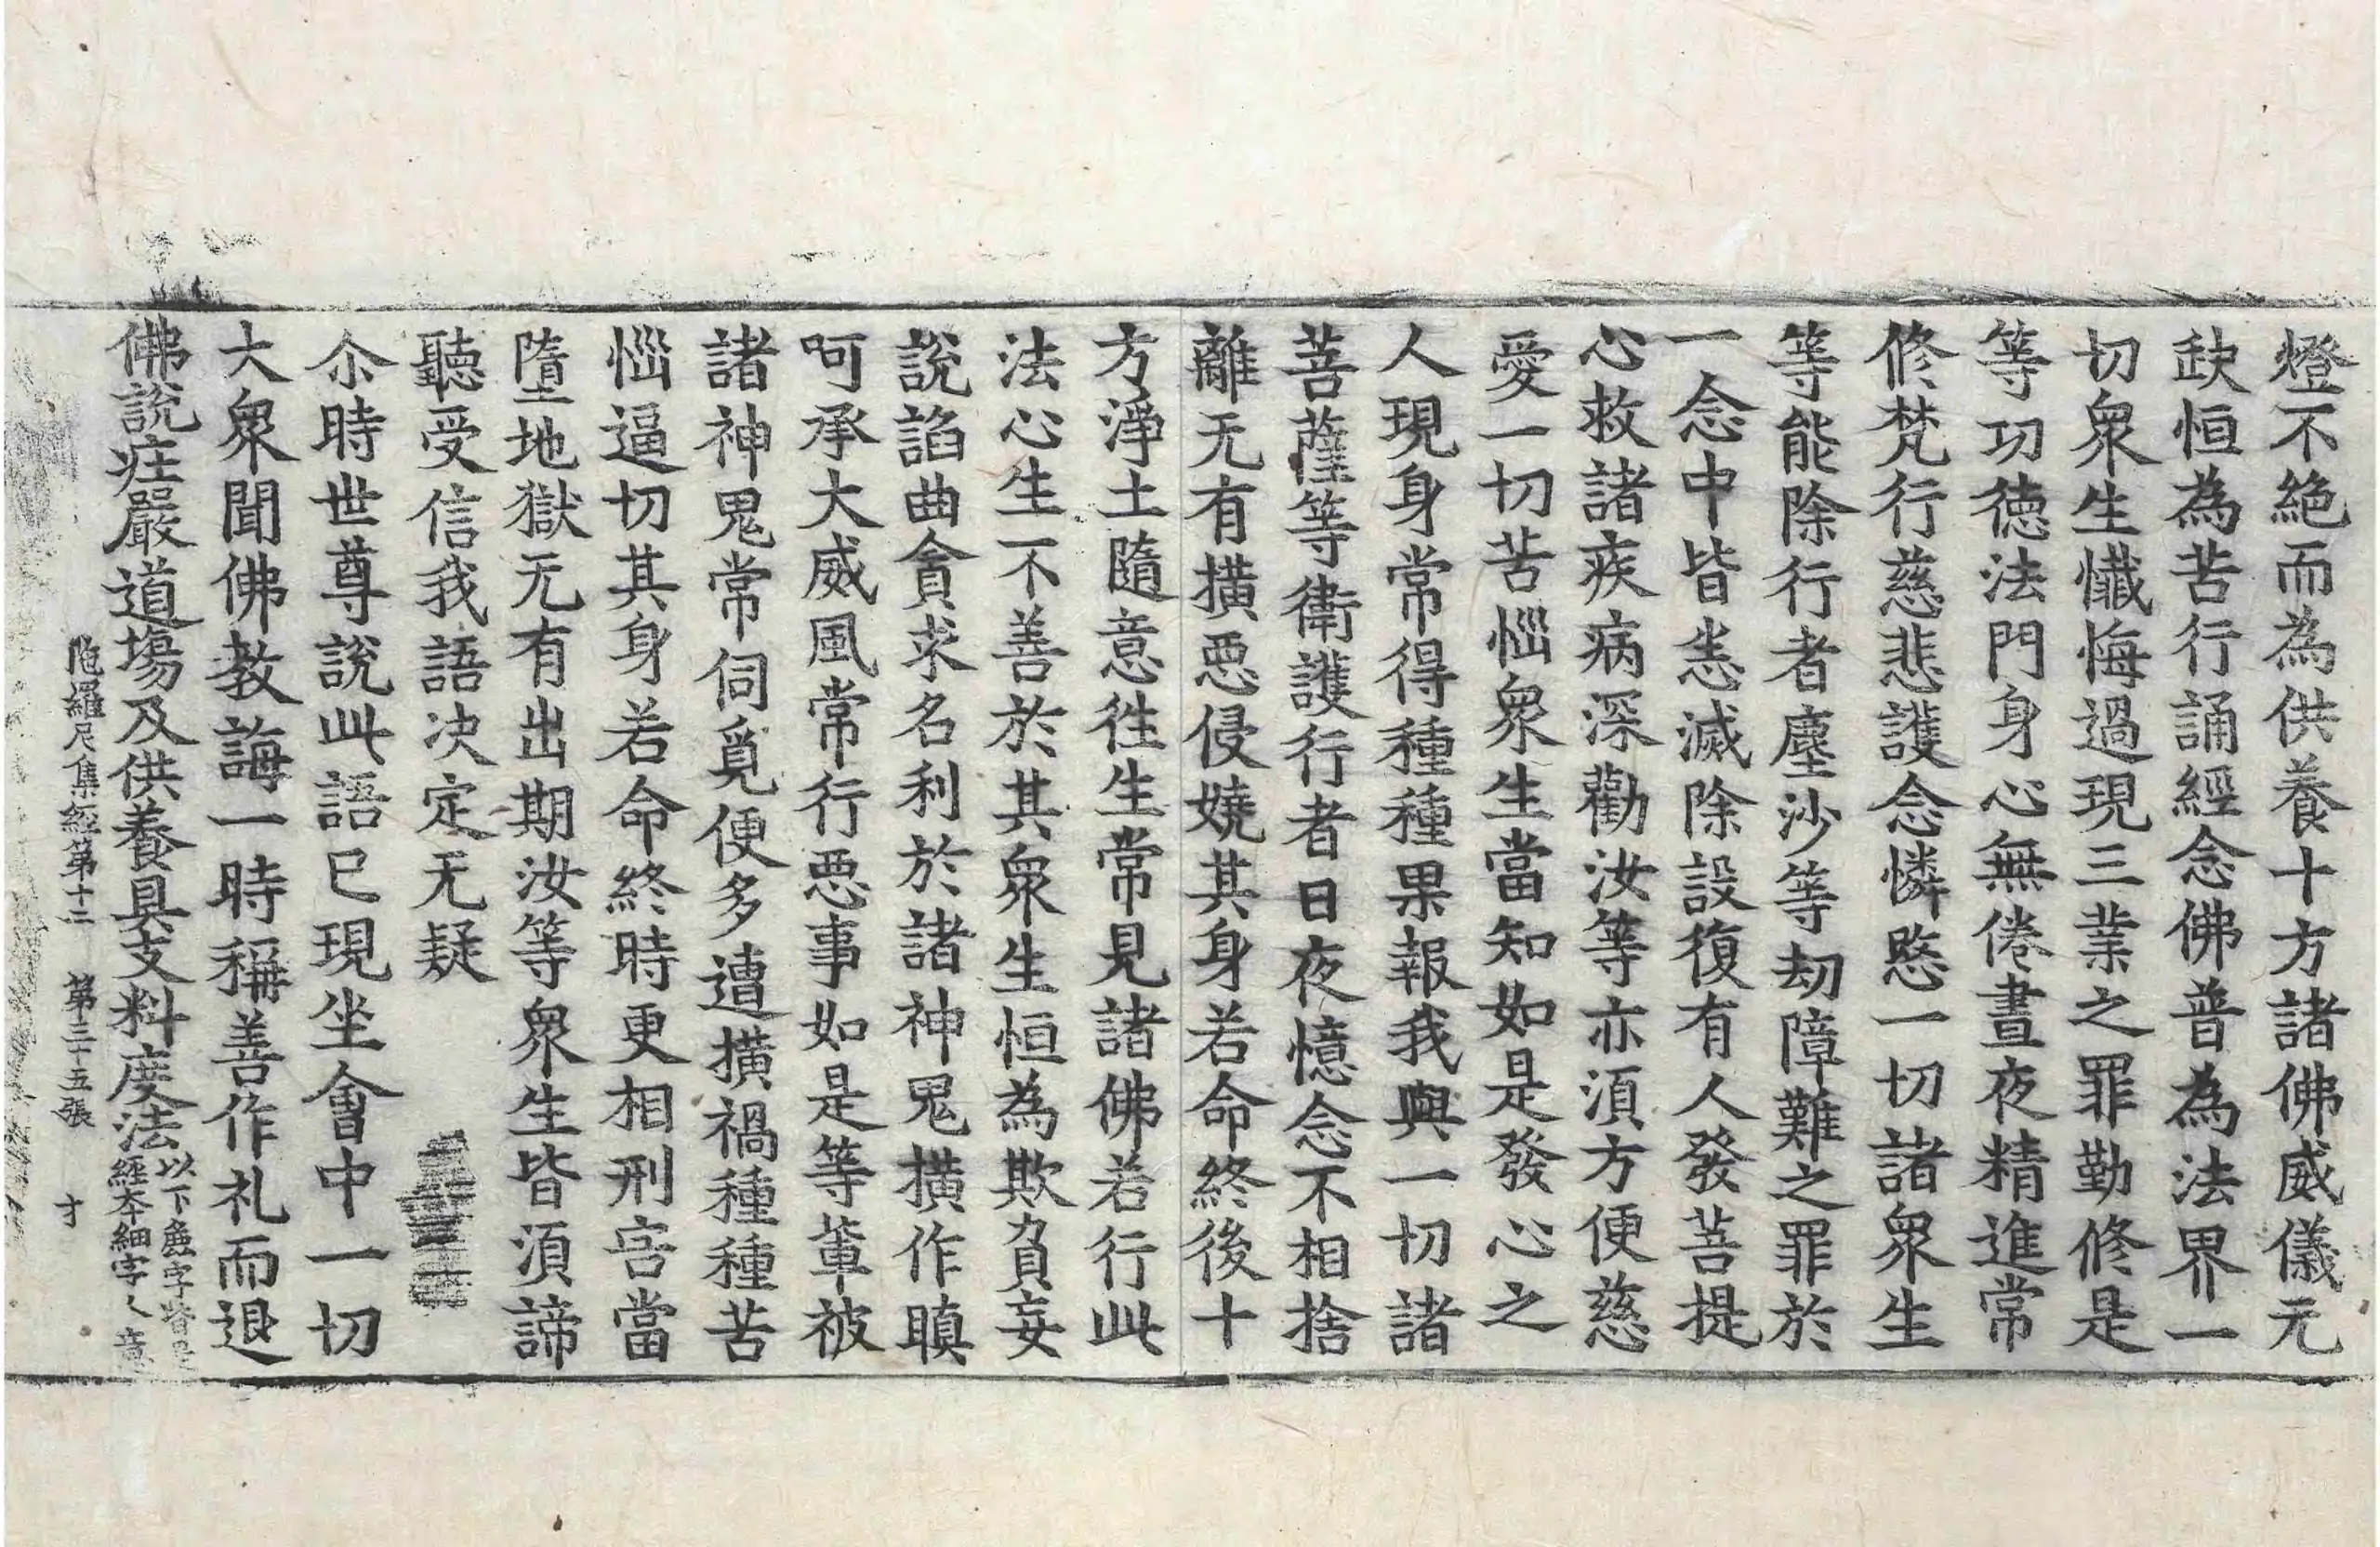 燈不絶而為供養十方諸佛威儀无
缼恒為苦行誦經念佛普為法界一
切衆生懺悔過現三業之罪勤修是
等功徳法門身心無倦晝夜精進常
修梵行慈悲護念憐愍一切諸衆生
等能除行者塵沙等劫障難之罪於
一念中皆悉滅除設復有人發菩提
心救諸疾病深勸汝等亦湏方便慈
愛一切苦惱衆生當知如是發心之
人現身常得種種果報我與一切諸
菩薩等衛護行者日夜憶念不相捨
離无有撗惡侵嬈其身若命終後十
方淨土隨意徃生常見諸佛若行此
法心生不善於其衆生恒為欺負妄
說諂曲貪求名利於諸神鬼撗作瞋
呵承大威風常行惡事如是等軰被
諸神鬼常伺覓便多遭撗禍種種苦
惱逼切其身若命終時更相刑害當
墮地獄无有出期汝等衆生皆湏諦
聽受信我語决定无疑
尒時世尊說此語已現坐會中一切
大衆聞佛教誨一時稱善作礼而退
佛說庄嚴道塲及供養具支料度法
以下麁字皆是
經本細字人意
陁羅尼集經第十二 第三十五張 才